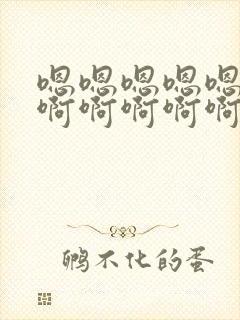 嗯嗯嗯嗯嗯
啊啊啊啊啊
鸭不化的蛋